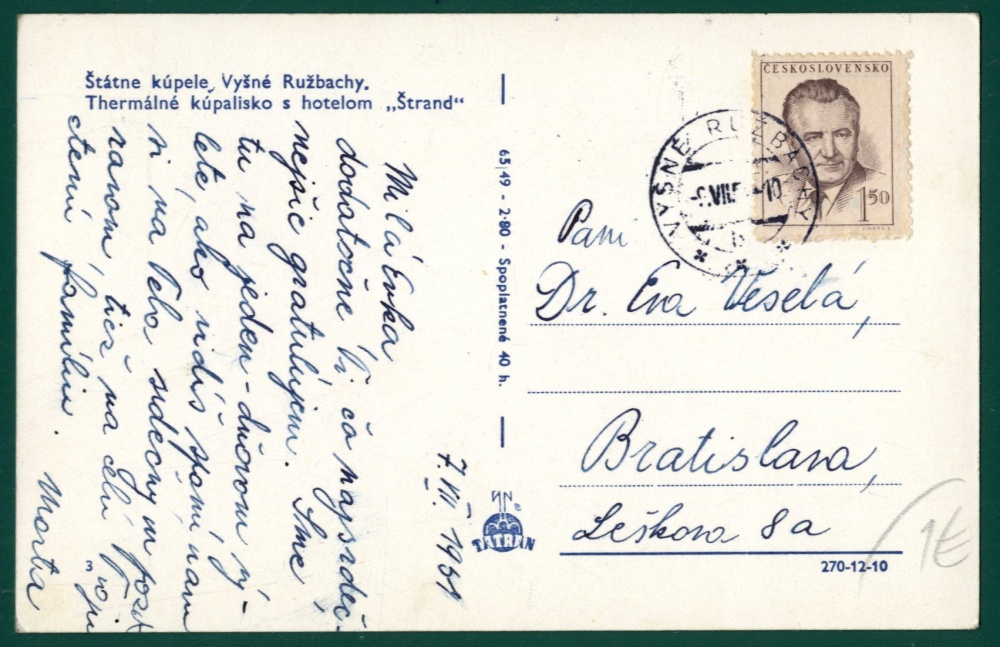 Štátne kúpele Vyšné Ružbachy.
Thermálné kúpalisko s hotelom „Štrand“
Milá Evka
dodatočne Ti čo najsrdeč-
nejšie gratulujem. Sme
tu na jeden-dňovom vý-
lete, ako vidíš spomíname
si na Teba srdečný
tiež na celú
ctenú famíliu.
Marta
7. VII 1951
65|49 - 2·80 - Spoplatnené 40 h.
TATRAN
ČESKOSLOVENSKO
1 50
VYŠNÉ RUŽBACHY
-6.VII.5 -10
b
Pani
Dr. Eva Veselá,
Bratislava,
Leškova 8a
270-12-10
1€